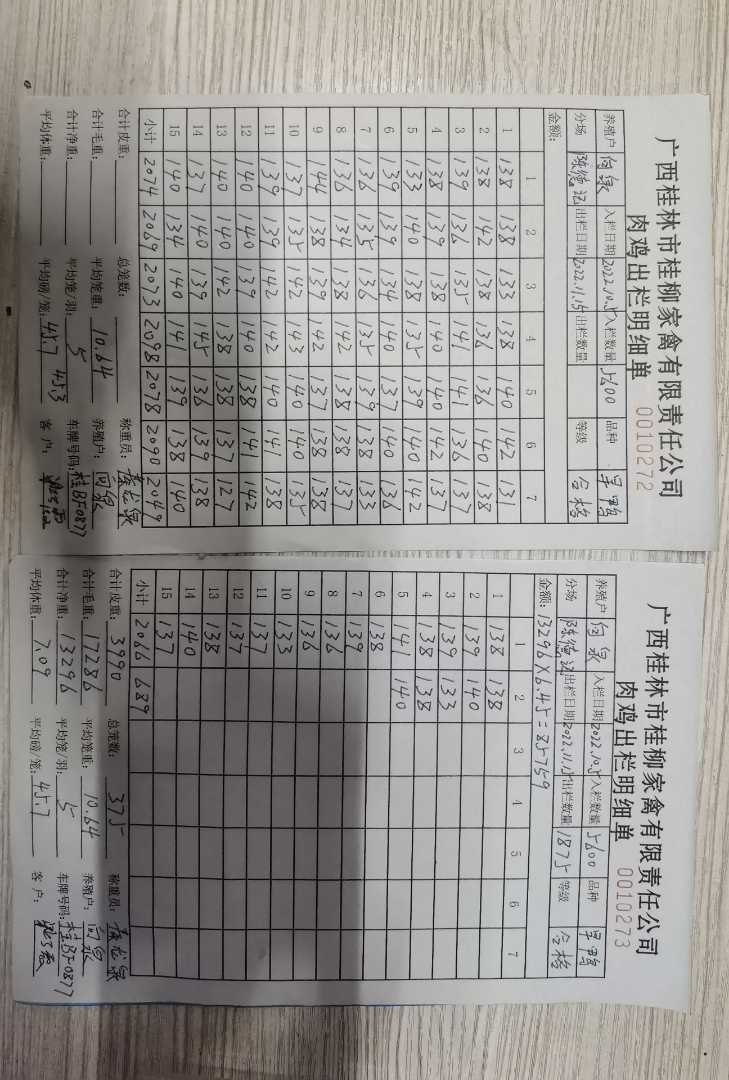 广西桂林市桂柳家禽有限责任公司
肉鸡出栏明细单 0010272
养殖户 向泉 入栏日期 2022.10.5 入栏数量 5600 品种 旱鸭
分场 陈德记 出栏日期 2022.11.15 出栏数量 等级 合格
金额：
1 2 3 4 5 6 7
1 138 138 133 138 140 142 131
2 138 142 138 136 136 140 138
3 139 136 135 141 141 136 137
4 138 139 138 140 140 142 137
5 133 140 138 135 139 140 142
6 139 139 134 140 137 140 136
7 136 135 136 135 139 138 133
8 136 134 138 142 138 138 137
9 144 138 139 142 137 138 138
10 137 135 142 143 140 140 135
11 139 139 142 142 140 141 138
12 140 140 139 140 138 141 142
13 140 140 142 138 138 137 127
14 137 140 139 145 136 139 138
15 140 134 140 141 139 138 140
小计 2074 2069 2073 2098 2078 2090 2049
合计皮重： 总笼数： 称重员：
合计毛重： 平均笼重：10.64 养殖户：向泉
合计净重： 平均笼/羽：5 车牌号码：桂BF0877
平均体重： 平均磅/笼：45.7 45.3 客户：
广西桂林市桂柳家禽有限责任公司
肉鸡出栏明细单 0010273
养殖户 向泉 入栏日期 2022.10.5 入栏数量 5600 品种 旱鸭
分场 陈德记 出栏日期 2022.11.15 出栏数量 1875 等级 合格
金额：13296×6.45=85759
1 2 3 4 5 6 7
1 138 138
2 139 140
3 139 133
4 138 138
5 141 140
6 138
7 139
8 136
9 136
10 133
11 137
12 137
13 138
14 140
15 137
小计 2066 689
合计皮重：3990 总笼数：375 称重员：
合计毛重：17286 平均笼重：10.64 养殖户：向泉
合计净重：13296 平均笼/羽：5 车牌号码：桂BF0877
平均体重：7.09 平均磅/笼：45.7 客户：